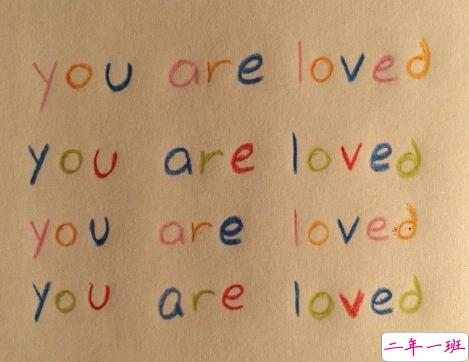 you are loved
you are loved
you are loved
you are loved
二年一班